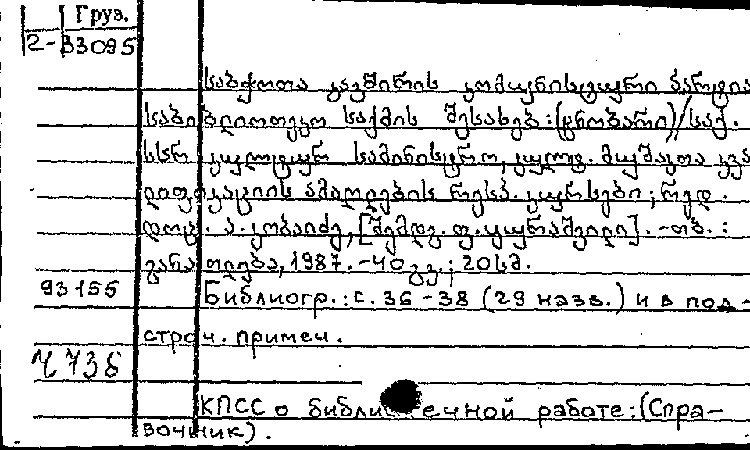 Груз.
2-33095
საბჭოთა კავშირის კომუნისტური პარტია
საბიბლიოთეკო საქმის შესახებ : (ცნობარი) / საქ.
სსრ კულტურის სამინისტრო, კულტ. მუშაკთა კვა
ლიფიკაციის ამაღლების რესპ. კურსები ; რედ.
დოც. ა. კობაიძე, [შემდგ. ფ. ყურაშვილი]. -თბ. :
განათლება, 1987. -40 გვ. ; 20 სმ.
93155 Библиогр.: с. 36-38 (29 назв.) и в под-
строч. примеч.
КПСС о библи течной работе: (Спра-
вочник).